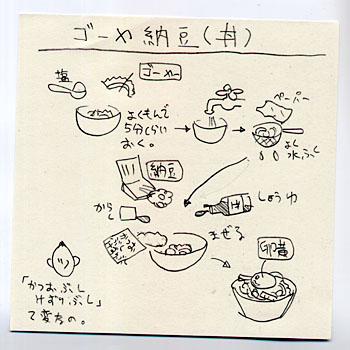 ゴーや納豆(丼)
塩
ゴーヤー
よくもんで
5分くらい
おく。
ペーパー
よし
水ぶし
納豆
からし
しょうゆ
まぜる
卵黄
「かつおぶし
けずりぶし」
て変なの。